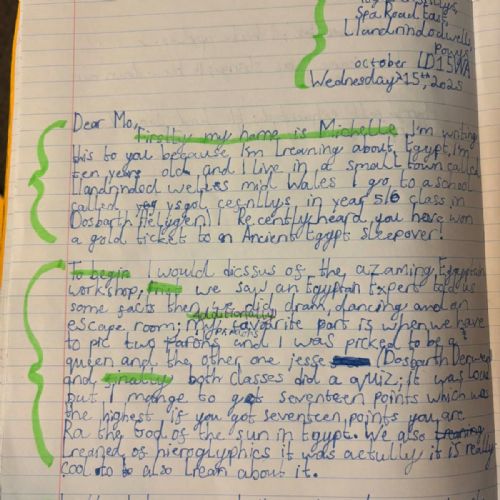 Spa Road East
Llandrindodwells
Powys
LD15WA
october
Wednesday 15th, 2025
Dear Mo,
Firstly my name is Michelle I'm writing
this to you because I'm Lrearning about Egypt, I'm
ten years old and I live in a small town called
Llandrindod welles mid Wales I go to a school
called ysgol cefnllys, in year 5/6 class in
Dosbarth Helygen! I Recently heard you have won
a gold ticket to an Ancient Egypt sleepover!
To begin I would dicssus of the azaming, Egyptain
workshop, we saw an Egyptian Expert told us
some facts then we did dram, dancing and an
Additionally
escape room; my favourite part is when we have
to pic two farons and I was picked to be a
queen and the other one jesse (Dosbarth Derwen
and finally both classes did a quiz; it was
but I mange to got seventeen points which was
the highest if you got seventeen points you are
Ra the God of the sun in Egypt. We also
Lreaned of hieroglyphics it was actully it is really
cool to also Lrean about it.